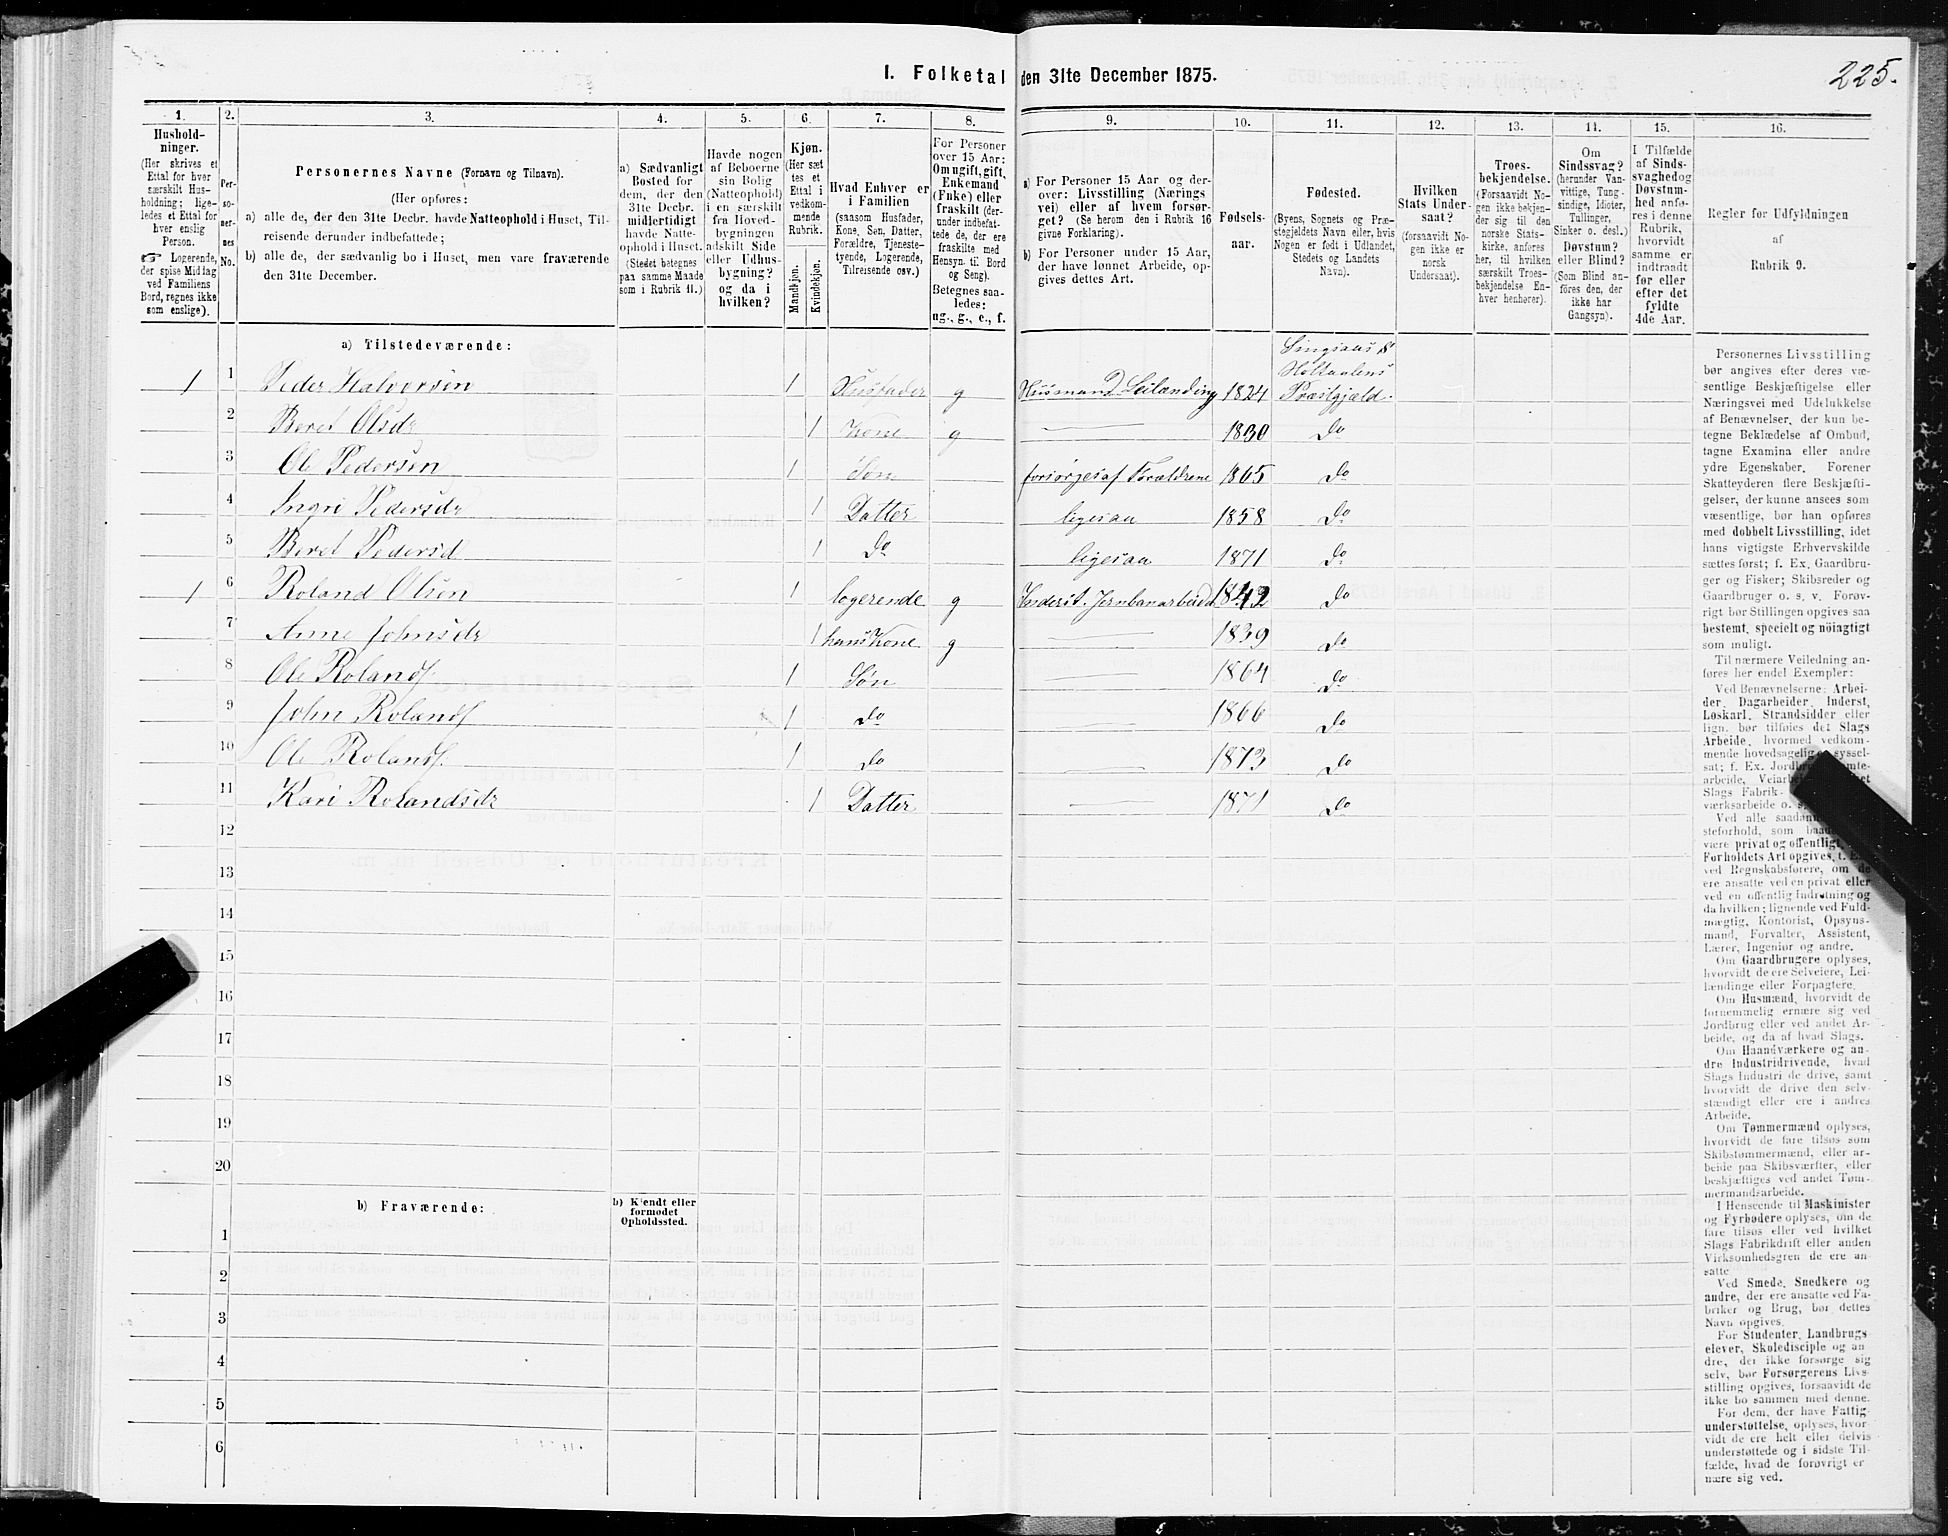 I. Folketal den 31te December 1875.
225.
1. 2. 3. 4. 5. 6. 7. 8. 9. 10. 11. 12. 13. 14. 15. 16.
Hushold-
ninger.
(Her skrives et
Ettal for hver
særskilt Hus-
holdning; lige-
ledes et Ettal for
hver enslig
Person.
☞ Logerende,
der spise Middag
ved Familiens
Bord, regnes ikke
som enslige).
Per-
so-
ner-
nes
No.
Personernes Navne (Fornavn og Tilnavn).
(Her opføres:
a) alle de, der den 31te Decbr. havde Natteophold i Huset, Til-
reisende derunder indbefattede;
b) alle de, der sædvanlig bo i Huset, men vare fraværende
den 31te December.
a) Sædvanligt
Bosted for
dem, der den
31te Decbr.
midlertidigt
havde Natte-
ophold i Huset.
(Stedet betegnes
paa samme Maade
som i Rubrik 11.)
Havde nogen
af Beboerne
sin Bolig
(Natteophold)
i en særskilt
fra Hoved-
bygningen
adskilt Side-
eller Udhus-
bygning?
og da i
hvilken?
Kjøn.
(Her sæt-
tes et
Ettal i
vedkom-
mende
Rubrik.
Mandkjøn.
Kvindekjøn.
Hvad Enhver er
i Familien
(saasom Husfader,
Kone, Søn, Datter,
Forældre, Tjeneste-
tyende, Logerende,
Tilreisende osv.)
For Personer
over 15 Aar:
Om ugift, gift,
Enkemand
(Enke) eller
fraskilt (der-
under indbefat-
tede de, der ere
fraskilte med
Hensyn til Bord
og Seng).
Betegnes saa-
ledes:
ug., g., e., f.
a) For Personer 15 Aar og der-
over: Livsstilling (Nærings-
vei) eller af hvem forsør-
get? (Se herom den i Rubrik 16
givne Forklaring).
b) For Personer under 15 Aar,
der have lønnet Arbeide, op-
gives dettes Art.
Fødsels-
aar.
Fødested.
(Byens, Sognets og Præ-
stegjeldets Navn eller, hvis
Nogen er født i Udlandet,
Stedets og Landets
Navn).
Hvilken
Stats Under-
saat?
(forsaavidt No-
gen ikke er
norsk
Undersaat).
Troes-
bekjendelse.
(Forsaavidt No-
gen ikke bekjen-
der sig til den
norske Stats-
kirke, anføres
her, til hvilken
særskilt Troes-
bekjendelse En-
hver henhører).
Om
Sindssvag?
(herunder Van-
vittige, Tung-
sindige, Idioter,
Tullinger,
Sinker o. desl.)
Døvstum?
eller Blind?
(Som Blind an-
føres den, der
ikke har
Gangsyn).
I Tilfælde
af Sinds-
svaghed og
Døvstum-
hed anfø-
res i denne
Rubrik,
hvorvidt
samme er
indtraadt
før eller
efter det
fyldte
4de Aar.
Regler for Udfyldningen
af
Rubrik 9.
a) Tilstedeværende:
1 1 Peder Halvorsen 1 Husfader g Husmand Leilænding 1824 Singsaas & Holtaalens Præstgjæld.
2 Beret Olsdr 1 Kone g 1830 Do
3 Ole Pedersen 1 Søn forsørges af Forældrene 1865 Do
4 Ingri Pedersdr 1 Datter ligesaa 1858 Do
5 Beret Pedersd 1 Do ligesaa 1871 Do
1 6 Roland Olsen 1 logerende g Inderst. Jernbanarbeid 1842 Do
7 Anne Johnsdr 1 hans Kone g 1839 Do
8 Ole Rolands. 1 Søn 1864 Do
9 John Rolands 1 Do 1866 Do
10 Ole Rolands. 1 do 1873 Do
11 Kari Rolandsdr 1 Datter 1871 Do
12
13
14
15
16
17
18
19
20
b) Fraværende:
b) Kjendt eller
formodet
Opholdssted.
1
2
3
4
5
6
Personernes Livsstilling
bør angives efter deres væ-
sentlige Beskjæftigelse eller
Næringsvei med Udelukkelse
af Benævnelser, der kun be-
tegne Beklædelse af Ombud,
tagne Examina eller andre
ydre Egenskaber. Forener
Skatteyderen flere Beskjæfti-
gelser, der kunne ansees som
væsentlige, bør han opføres
med dobbelt Livsstilling, idet
hans vigtigste Erhvervskilde
sættes først; f. Ex. Gaardbru-
ger og Fisker; Skibsreder og
Gaardbruger o. s. v. Forøv-
rigt bør Stillingen opgives saa
bestemt, specielt og nøiagtigt
som muligt.
Til nærmere Veiledning an-
føres her endel Exempler:
Ved Benævnelserne: Arbei-
der, Dagarbeider, Inderst,
Løskarl, Strandsidder eller
lign. bør tilføies det Slags
Arbeide, hvormed vedkom-
mende hovedsagelig er syssel-
sat; f. Ex.
arbeide,
Slags Fabrik-
værksarbeide o. s.
Ved alle
steforhold, som
være privat og offentligt,
Forholdets Art opgives,
ved Regnskabsførere, om de
ere ansatte ved en privat eller
ved en offentlig Indretning og
da hvilken; lignende ved Fuld-
mægtig, Kontorist, Opsyns-
mand, Forvalter, Assistent,
Lærer, Ingeniør og andre.
Om Gaardbrugere oplyses,
hvorvidt de ere Selveiere, Lei-
lændinge eller Forpagtere.
Om Husmænd, hvorvidt de
fornemmelig ernære sig ved
Jordbrug eller ved andet Ar-
beide, og da af hvad Slags.
Om Haandværkere og an-
dre Industridrivende, hvad
Slags Industri de drive, samt
hvorvidt de drive den selv-
stændigt eller ere i andres
Arbeide.
Om Tømmermænd oplyses,
hvorvidt de fare tilsøs som
Skibstømmermænd, eller ar-
beide paa Skibsværfter, eller
beskjæftiges ved andet Tøm-
mermandsarbeide.
I Henseende til Maskinister
og Fyrbødere oplyses, om de
fare tilsøs eller ved hvilket
Slags Fabrikdrift eller anden
Virksomhedsgren de ere an-
satte
Ved Smede, Snedkere og
andre, der ere ansatte ved Fa-
briker og Brug, bør dettes
Navn opgives.
For Studenter, Landbrugs-
elever, Skoledisciple og an
dre, der ikke forsørge sig
selv, bør Forsørgerens Livs-
stilling opgives, forsaavidt de
ikke bo sammen med denne.
For dem, der have Fattig-
understøttelse, oplyses, hvor-
vidt de ere helt eller delvis
understøttede og i sidste Til-
fælde, hvad de forøvrigt er
nære sig ved.